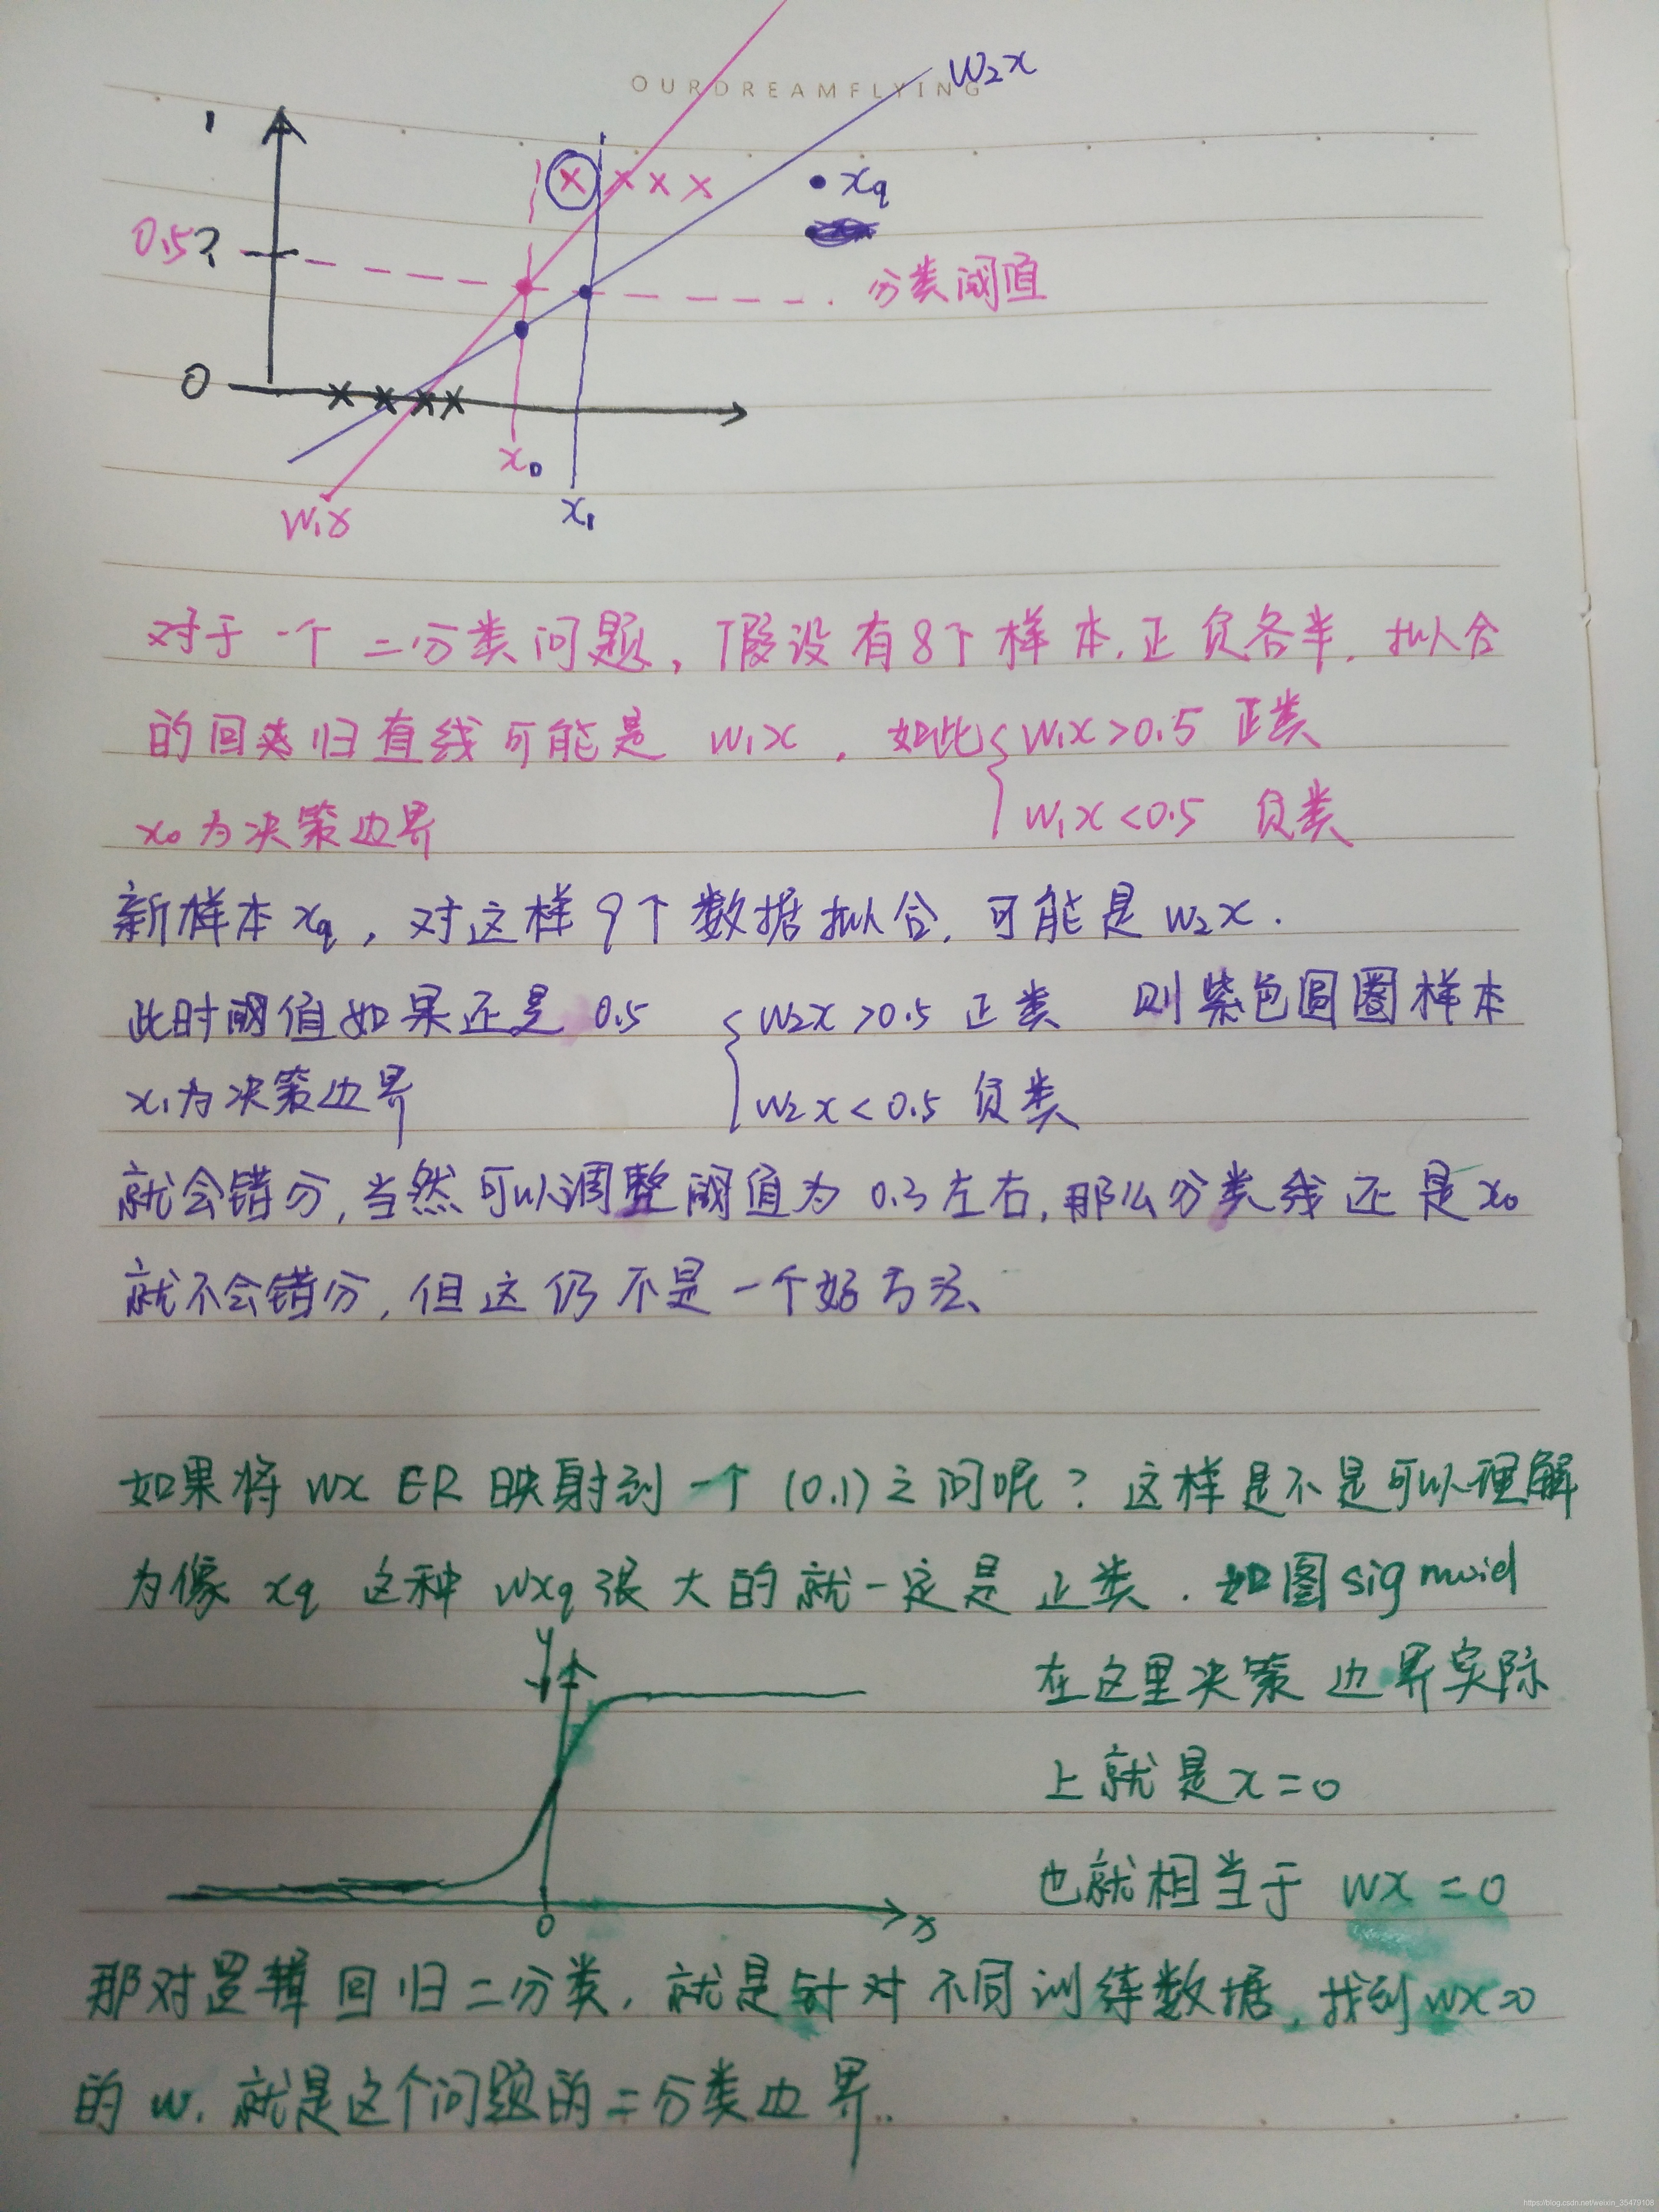 OURDREAMFLYING
w₂x
1
xq
0.5?
分类阈值
0
x₀
x₁
w₁x
对于一个二分类问题，假设有8个样本，正负各半，拟合
的回归直线可能是 w₁x，如此{ w₁x>0.5 正类
x₀为决策边界 w₁x<0.5 负类
新样本xq，对这样9个数据拟合，可能是w₂x.
此时阈值如果还是0.5 { w₂x>0.5 正类 则紫色圆圈样本
x₁为决策边界 w₂x<0.5 负类
就会错分，当然可以调整阈值为0.3左右，那么分类线还是x₀
就不会错分，但这仍不是一个好方法、
如果将 wx∈R 映射到一个(0,1)之间呢？这样是不是可以理解
为像 xq 这种 wxq 很大的就一定是正类．如图sigmoid
y
在这里决策边界实际
上就是x=0
也就相当于 wx=0
0 x
那对逻辑回归二分类，就是针对不同训练数据，找到wx=0
的w，就是这个问题的二分类边界．
https://blog.csdn.net/weixin_35479108